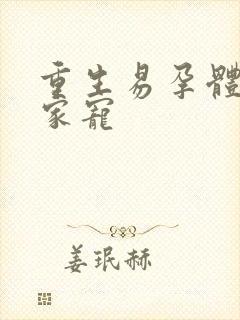 重生易孕體
家寵
姜珉赫